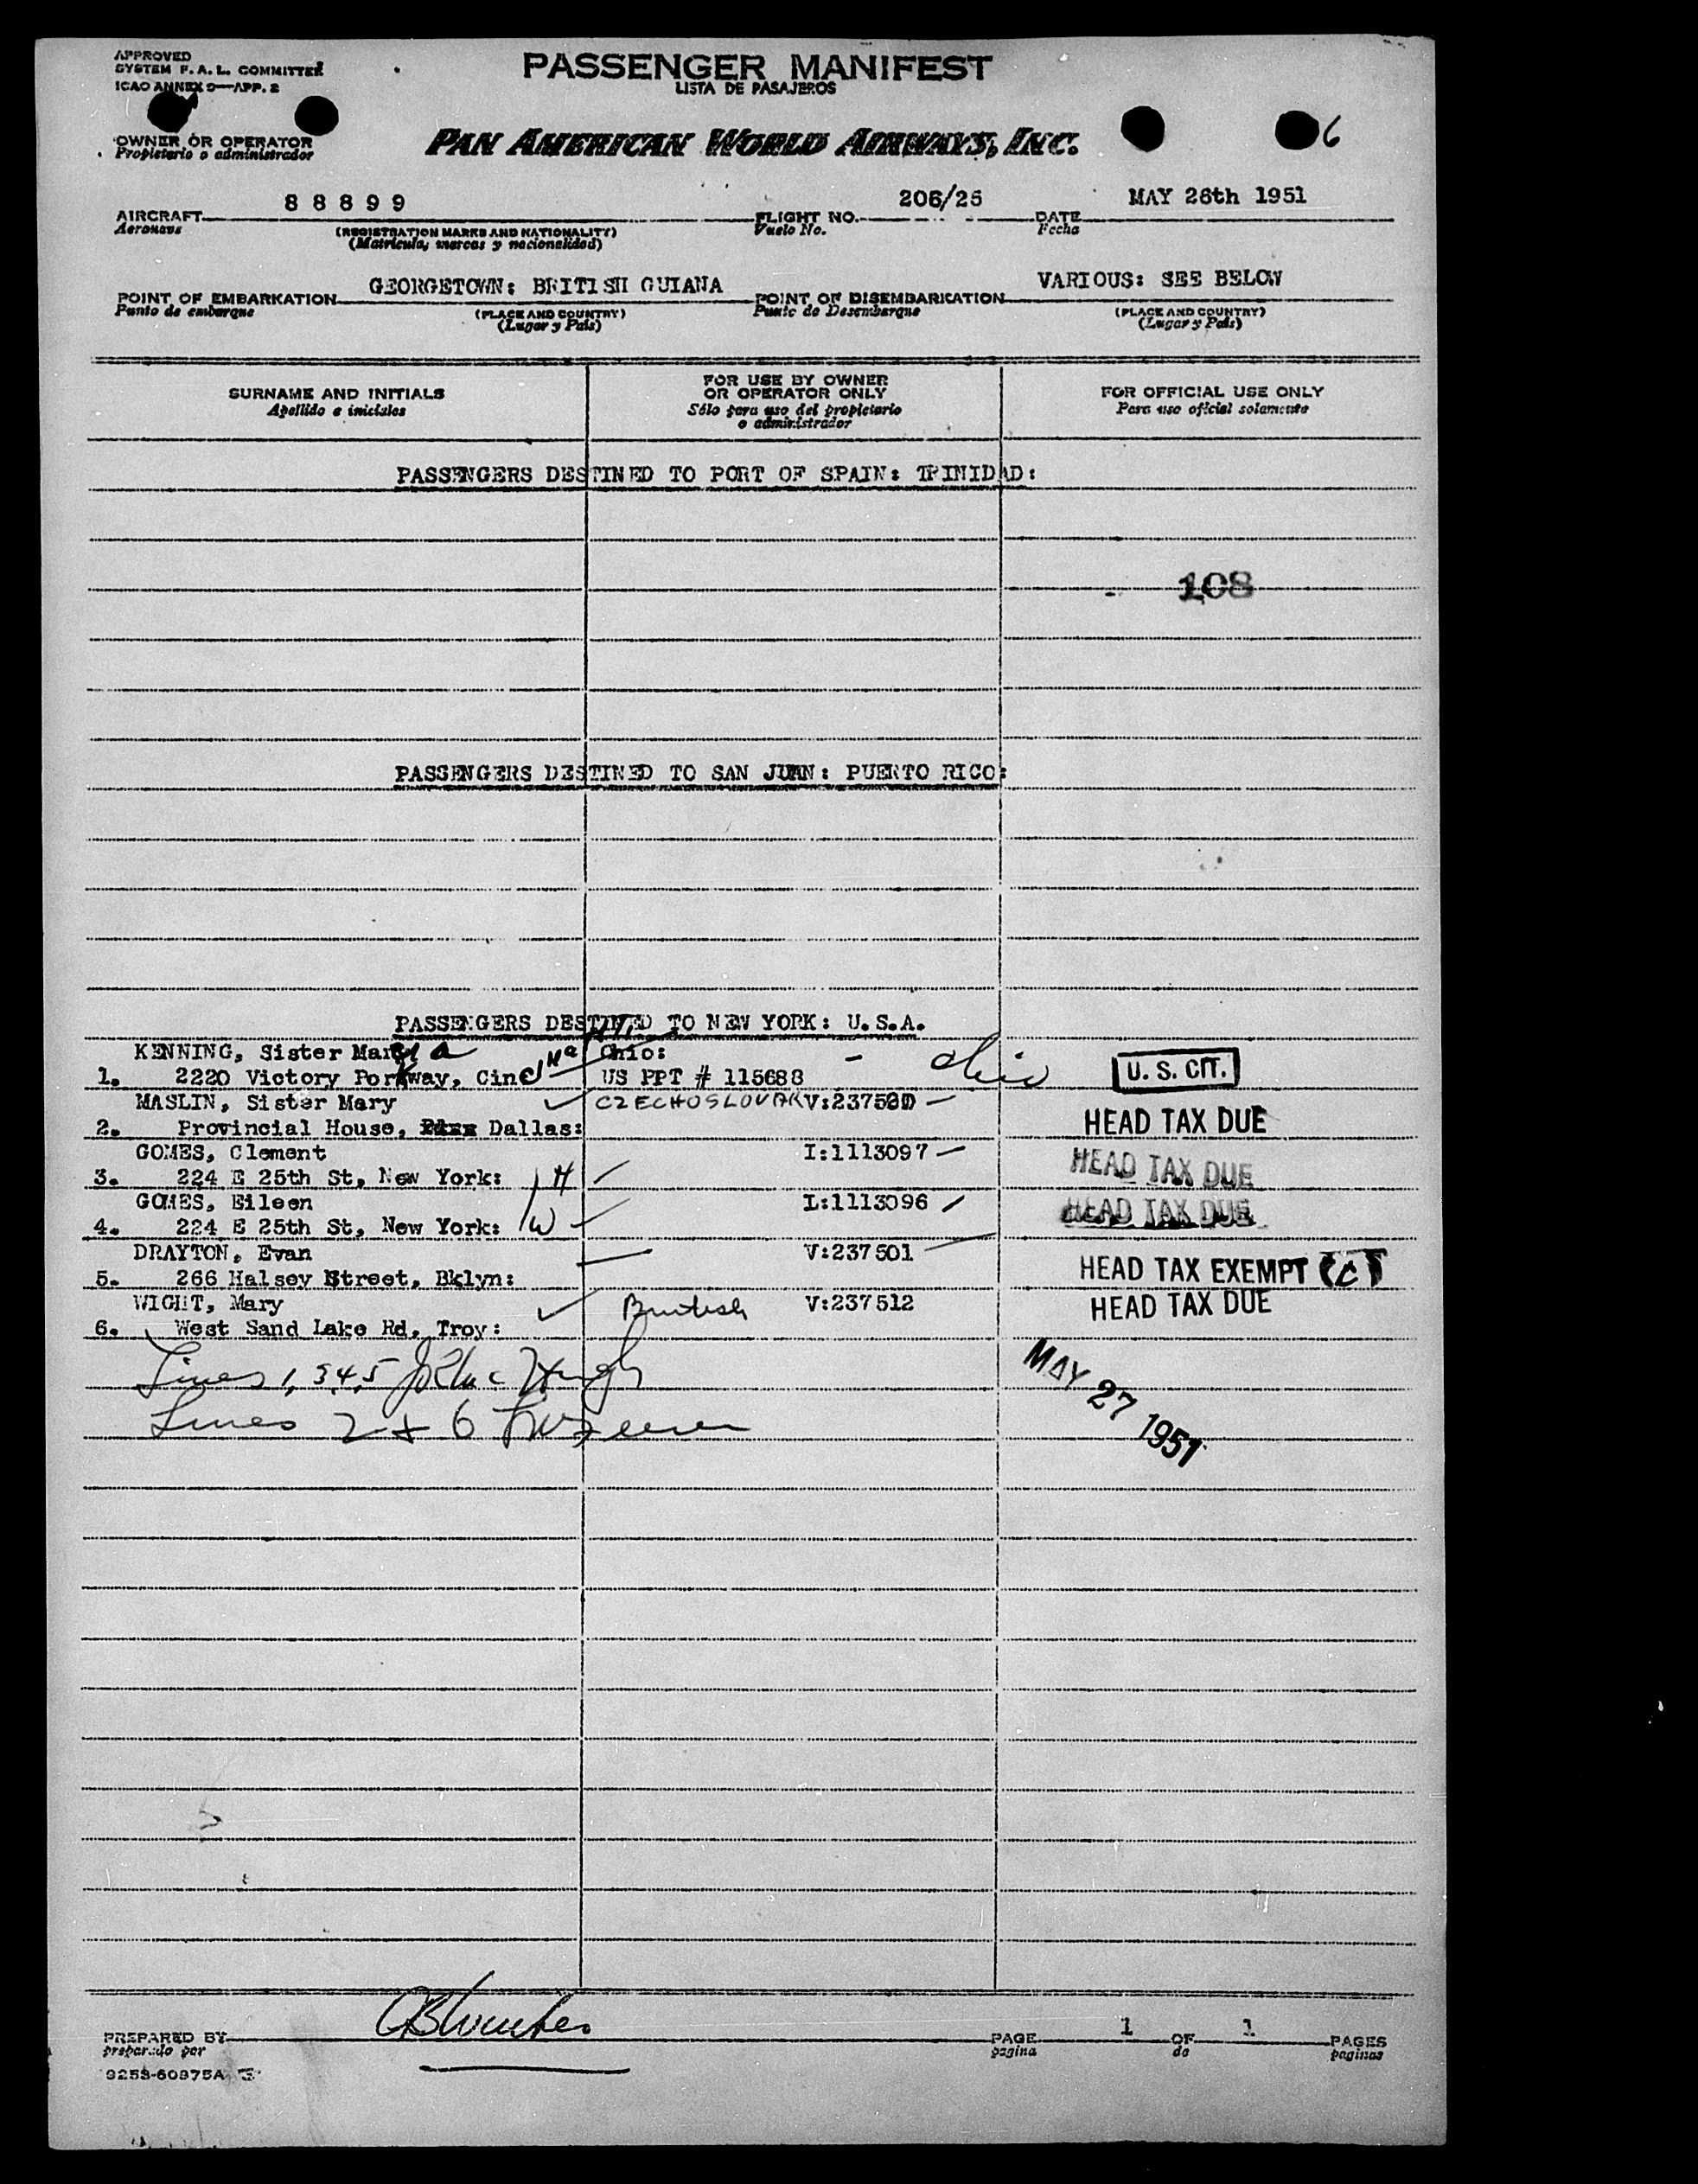 APPROVED
SYSTEM F. A. L. COMMITTEE
ICAO ANNEX 9—APP. 2
PASSENGER MANIFEST
LISTA DE PASAJEROS
OWNER OR OPERATOR
Propietario o administrador
PAN AMERICAN WORLD AIRWAYS, INC.
6
AIRCRAFT 88899
Aeronave
(REGISTRATION MARKS AND NATIONALITY)
(Matricula, marcas y nacionalidad)
FLIGHT NO. 206/25
Vuelo No.
DATE MAY 26th 1951
Fecha
POINT OF EMBARKATION GEORGETOWN: BRITISH GUIANA
Punto de embarque
(PLACE AND COUNTRY)
(Lugar y País)
POINT OF DISEMBARKATION VARIOUS: SEE BELOW
Punto de Desembarque
(PLACE AND COUNTRY)
(Lugar y País)
SURNAME AND INITIALS
Apellido e iniciales
FOR USE BY OWNER
OR OPERATOR ONLY
Sólo para uso del propietario
o administrador
FOR OFFICIAL USE ONLY
Para uso oficial solamente
PASSENGERS DESTINED TO PORT OF SPAIN: TRINIDAD:
108
PASSENGERS DESTINED TO SAN JUAN: PUERTO RICO:
PASSENGERS DESTINED TO NEW YORK: U.S.A.
KENNING, Sister Maria Ohio: - Ohio
1. 2220 Victory Porkway, Cinc US PPT # 115688 U. S. CIT.
MASLIN, Sister Mary CZECHOSLOVAK V:237500
2. Provincial House, Dallas: HEAD TAX DUE
GOMES, Clement I:1113097
3. 224 E 25th St, New York: H HEAD TAX DUE
GOMES, Eileen I:1113096
4. 224 E 25th St, New York: W HEAD TAX DUE
DRAYTON, Evan V:237501
5. 266 Halsey Street, Bklyn: HEAD TAX EXEMPT (C)
WIGHT, Mary British V:237512 HEAD TAX DUE
6. West Sand Lake Rd, Troy:
Lines 1, 3 4, 5
Lines 2 & 6
MAY 27 1951
PREPARED BY
preparado por
PAGE 1 OF 1 PAGES
pagina de paginas
9253-60975A